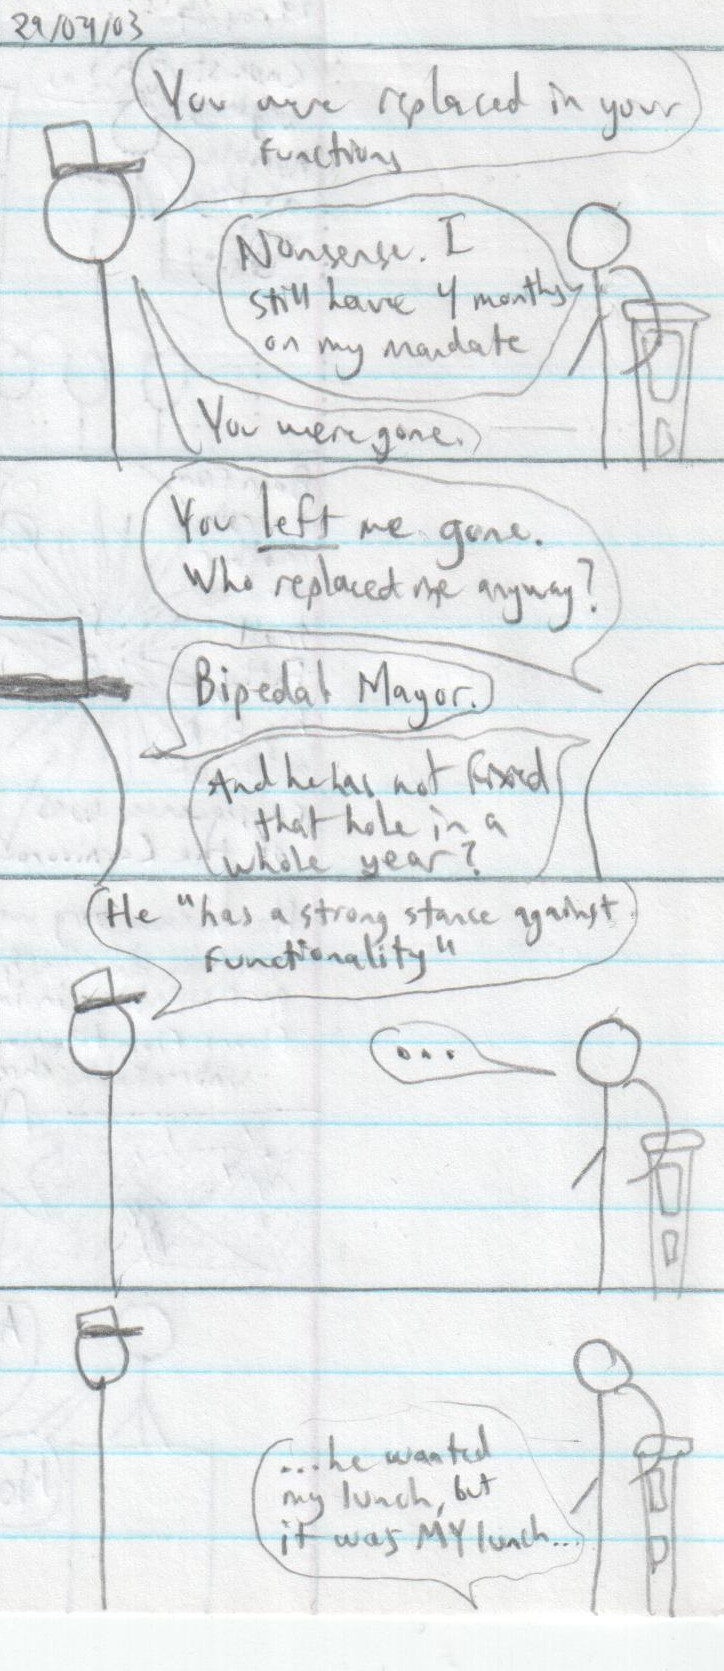 29/04/03
You were replaced in your
functions
Nonsense. I
still have 4 months
on my mandate
You were gone.
You left me gone.
Who replaced me anyway?
Bipedal Mayor.
And he has not fixed
that hole in a
whole year?
He "has a strong stance against
functionality"
...
...he wanted
my lunch, but
it was MY lunch...